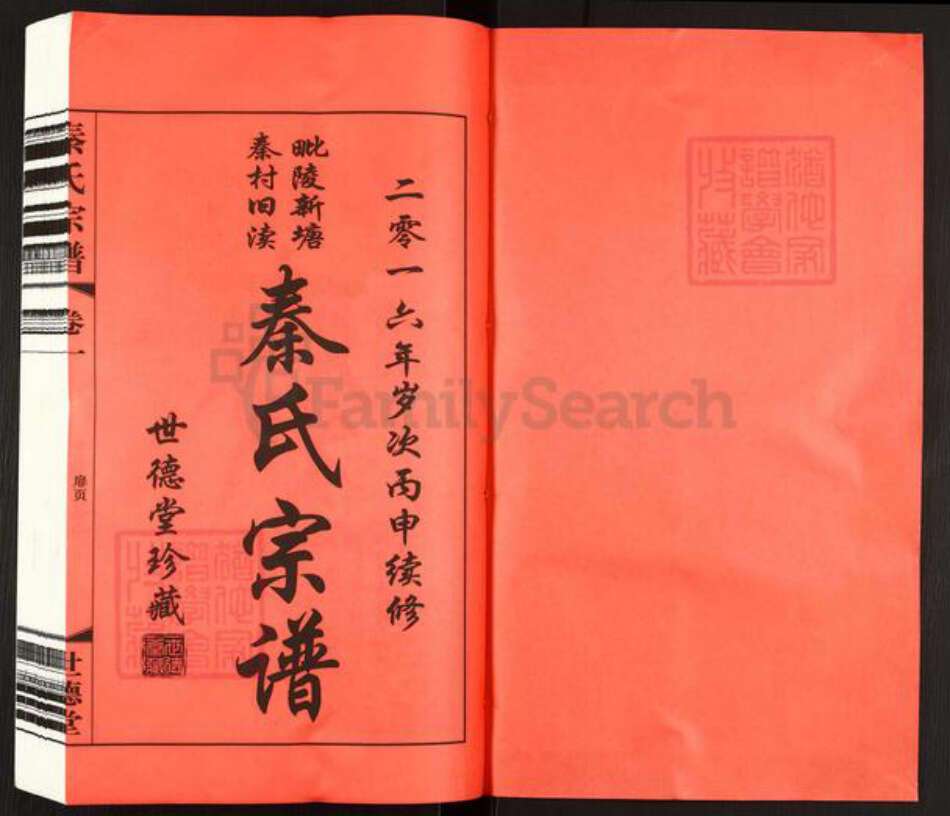 二零一六年岁次丙申续修
毗陵新塘
秦村旧渎
秦氏宗谱
世德堂珍藏
秦氏宗谱
卷一
扉页
世德堂
FamilySearch